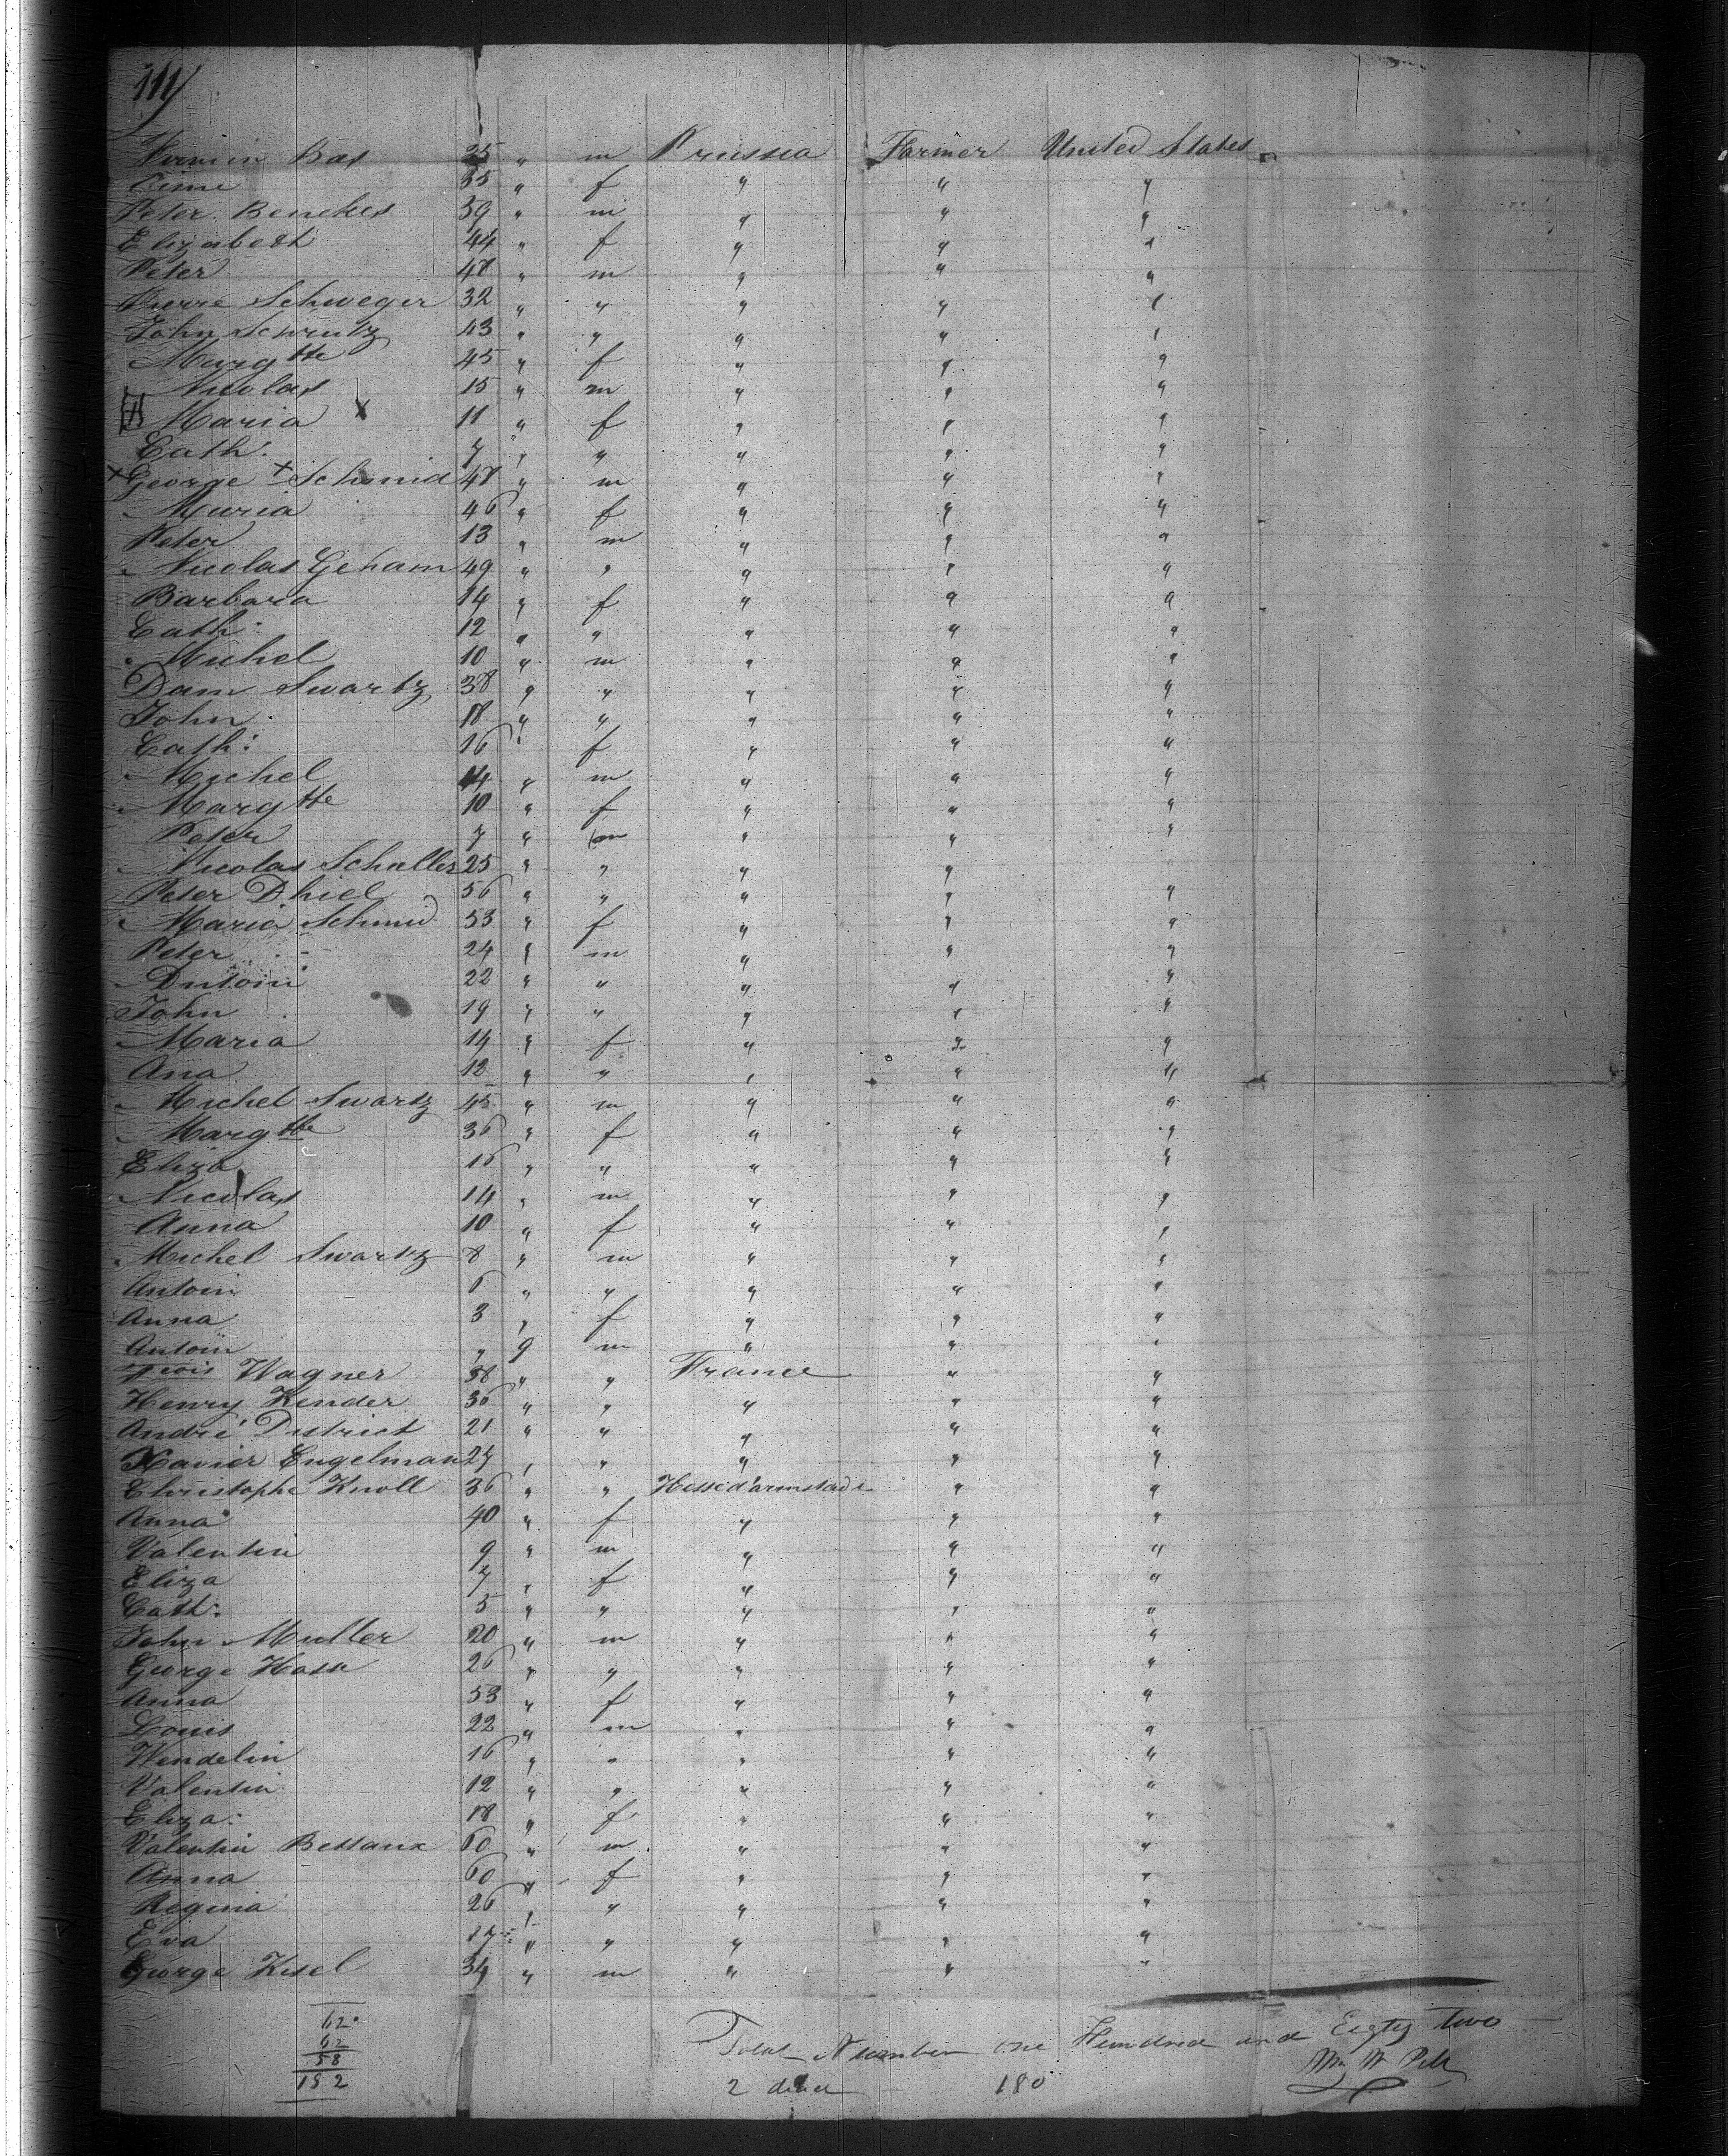 Bas 25 " m Prussia Farmer United States
35 " f " " "
Peter Benckes 39 " m " " "
Elizabeth 44 " f " " "
Peter 48 " m " " "
Pierre Schweger 32 " " " " "
John 43 " " " " "
Margtte 45 " f " " "
Nicolas 15 " m " " "
Maria X 11 " f " " "
Cath: 7 " " " " "
x George + Schmid 48 " m " " "
Maria 46 " f " " "
Peter 13 " m " " "
Nicolas Geham 49 " " " " "
Barbara 14 " f " " "
Cath: 12 " " " " "
Michel 10 " m " " "
Dam Swartz 38 " " " " "
John 18 " " " " "
Cath: 16 " f " " "
Michel 14 " m " " "
Margtte 10 " f " " "
Peter 7 " m " " "
Nicolas Schuller 25 " " " "
Peter Dhiel 56 " " " " "
Maria Schmid 53 " f " " "
Peter 24 " m " " "
Antoin 22 " " " " "
John 19 " " " " "
Maria 14 " f " " "
Ana 12 " " " " "
Michel Swartz 45 " m " " "
Margtte 36 " f " " "
Eliza 16 " " " " "
Nicolas 14 " m " " "
Anna 10 " f " " "
Michel Swartz 8 " m " " "
Antoin 6 " " " " "
Anna 3 " f " " "
Antoin " 9 m " " "
Wagner 38 " " France " "
Henry Kender 36 " " " " "
André District 21 " " " " "
Xavier Engelman 27 " " " " "
Christophe Knoll 36 " " Hesse d'armstadt " "
Anna 40 " f " " "
Valentin 9 " m " " "
Eliza 7 " f " " "
Cath: 5 " " " " "
John Muller 20 " m " " "
George Hasn 26 " " " " "
Anna 53 " f " " "
Louis 22 " m " " "
Wendelin 16 " " " " "
Valentin 12 " " " " "
Eliza: 18 " f " " "
Valentin Bettanx 60 " m " " "
Anna 60 " f " " "
Regina 26 " " " " "
Eva 17 " " " " "
George Kisel 34 " m " " "
62
62
58
182
Total Number one Hundred and Eigty two
2 died 180